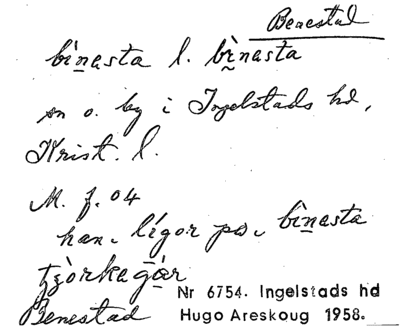 Benestad
bìnasta l. bìnasta
sn o. by i Ingelstads hd,
Krist. l.
M. f. 04
han lígor pɑ bìnasta
tjòrkagɑ̄r
Benestad
Nr 6754. Ingelstads hd
Hugo Areskoug 1958.